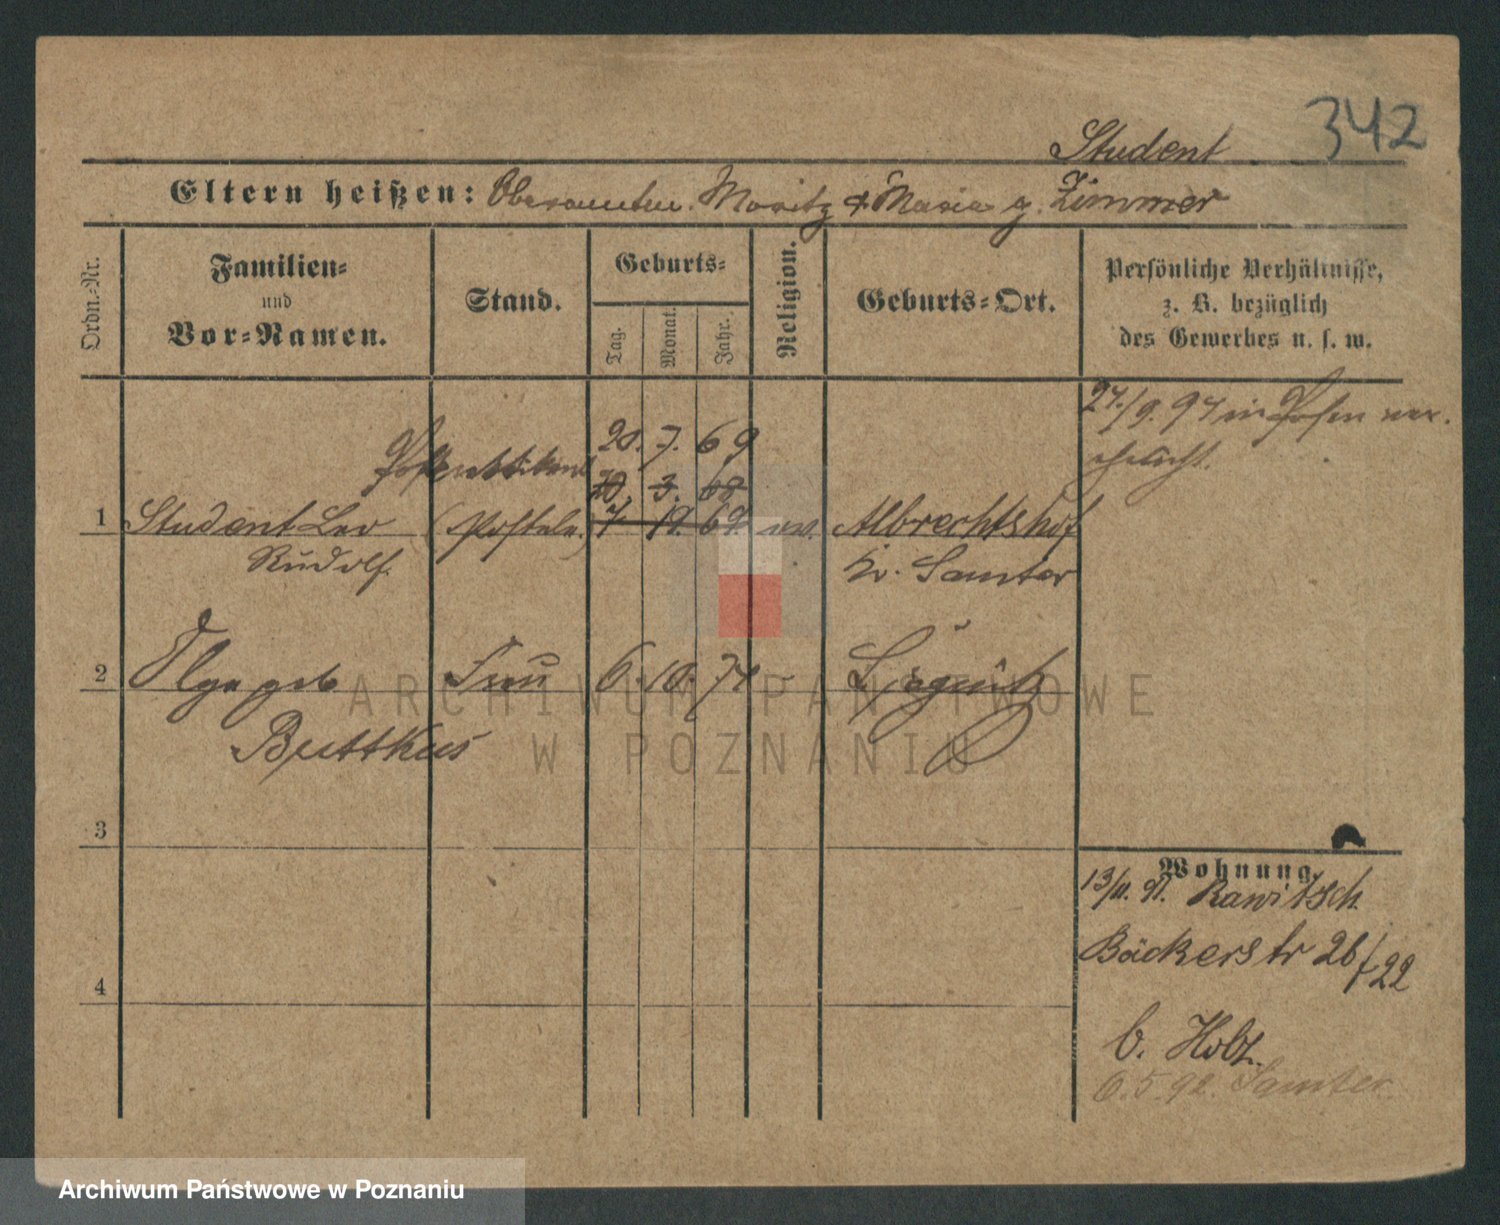 342
Student
Eltern heißen: Oberamtm. Moritz & Maria g. Zimmer
Ordn.-Nr.
Familien-
und
Vor-Namen.
Stand.
Geburts-
Tag.
Monat.
Jahr.
Religion.
Geburts-Ort.
Persönliche Verhältnisse,
z. B. bezüglich
des Gewerbes u. s. w.
27./9. 97 in Posen ver-
ehelicht.
20. 7. 69
20. 3. 68
1 Student Leo (Postele.) 7. 19. 69. ev. Albrechtshof
Rudolf. Kr. Samter
2 Olga geb Frau 6. 10. 74 Liegnitz
Buttkus
3
4
Wohnung.
13/11. 91. Rawitsch
Bäckerstr 26/22
b. Holz.
6.5.92. Samter
ARCHIWUM PAŃSTWOWE
W POZNANIU
Archiwum Państwowe w Poznaniu